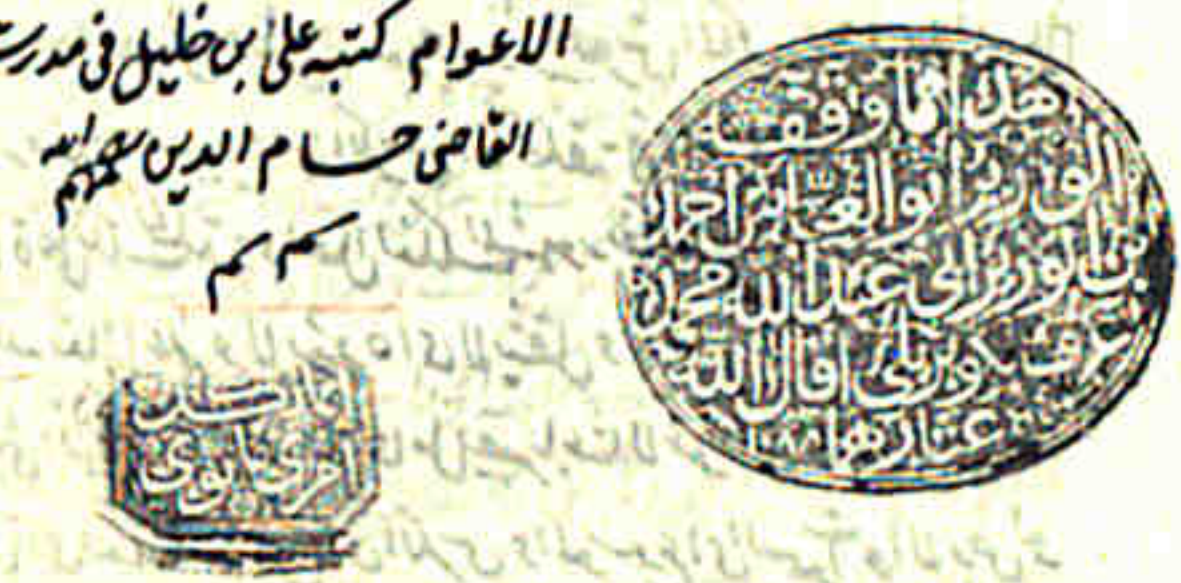 الاعوام كتبه علی بن خليل فی مدرست
القاضی حسام الدين رحمهم الله
هذا مما وقفه
الوزير ابو العباس احمد
بن الوزير ابی عبد الله محمد
عرف بكوپريلی اقال الله
عثارهما ٨٨
انما لكل
امرئ ما نوى